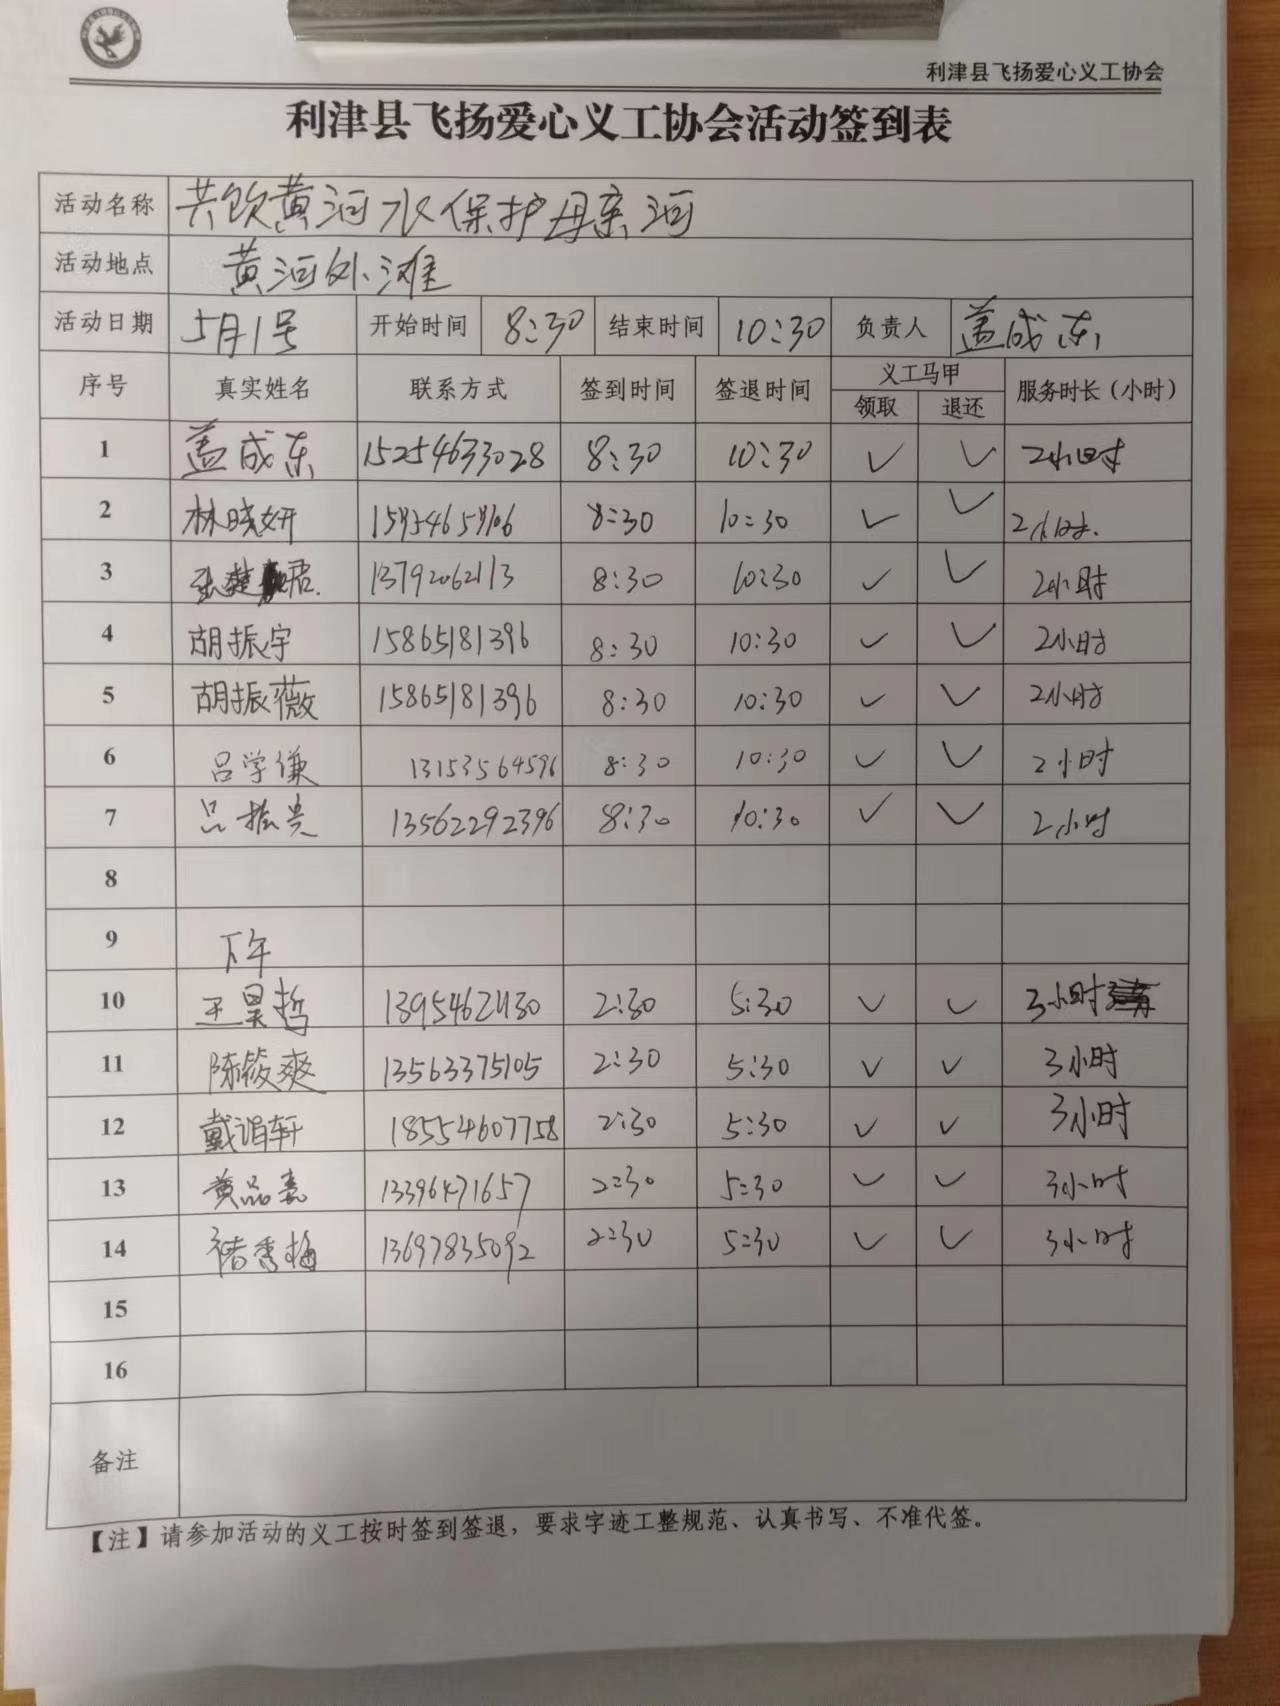 利津县飞扬爱心义工协会
利津县飞扬爱心义工协会活动签到表
活动名称 共饮黄河水保护母亲河
活动地点 黄河外滩
活动日期 5月1号 开始时间 8:30 结束时间 10:30 负责人 盖成东
序号 真实姓名 联系方式 签到时间 签退时间 义工马甲 服务时长（小时）
领取 退还
1 盖成东 15254633028 8:30 10:30 ✓ ✓ 2小时
2 林晓妍 8:30 10:30 ✓ ✓ 2小时.
3 张楚君. 13792062113 8:30 10:30 ✓ ✓ 2小时
4 胡振宇 15865181396 8:30 10:30 ✓ ✓ 2小时
5 胡振薇 15865181396 8:30 10:30 ✓ ✓ 2小时
6 吕学谦 13153564596 8:30 10:30 ✓ ✓ 2小时
7 吕振贵 13562292396 8:30 10:30 ✓ ✓ 2小时
8
9 下午
10 王昊哲 2:30 5:30 ✓ ✓ 3小时
11 陈筱爽 13563375105 2:30 5:30 ✓ ✓ 3小时
12 戴湄轩 18554607758 2:30 5:30 ✓ ✓ 3小时
13 黄品嘉 13396471657 2:30 5:30 ✓ ✓ 3小时
14 褚秀梅 13697835092 2:30 5:30 ✓ ✓ 3小时
15
16
备注
【注】请参加活动的义工按时签到签退，要求字迹工整规范、认真书写、不准代签。